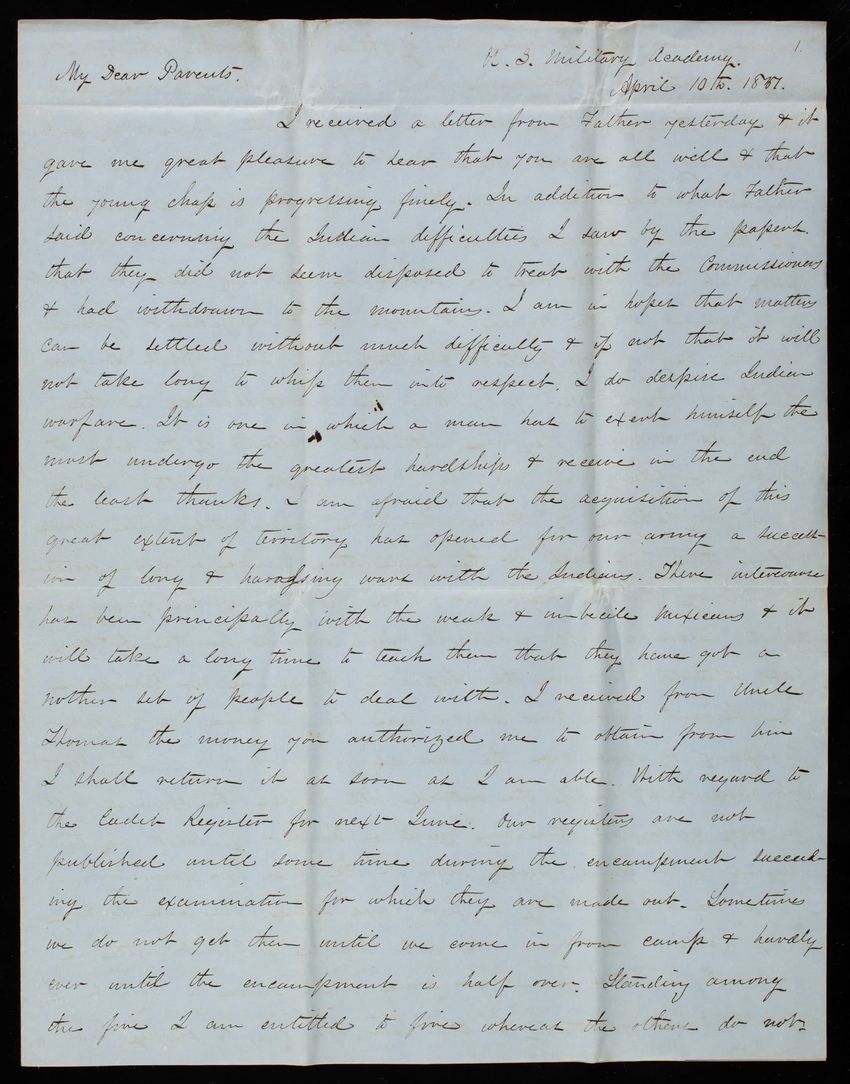 1.
U. S. Military Academy.
My Dear Parents.
April 10th. 1851.
I received a letter from Father yesterday & it
gave me great pleasure to hear that you are all well & that
the young chap is progressing finely. In addition to what Father
said concerning the Indian difficulties I saw by the papers.
that they did not seem disposed to treat with the Commissioners
& had withdrawn to the mountains. I am in hopes that matters
can be settled without much difficulty & if not that it will
not take long to whip them into respect. I do despise Indian
warfare. It is one in which a man has to exert himself the
most undergo the greatest hardships & receive in the end
the least thanks. I am afraid that the acquisition of this
great extent of territory has opened for our army a success-
ion of long & harassing wars with the Indians. There intercourse
has been principally with the weak & imbecile Mexicans & it
will take a long time to teach them that they have got a
nother set of people to deal with. I received from Uncle
Thomas the money you authorized me to obtain from him
I shall return it as soon as I am able. With regard to
the Cadet Register for next June. Our registers are not
published until some time during the encampment succeed-
ing the examination for which they are made out. Sometimes
we do not get them until we come in from camp & hardly
ever until the encampment is half over. Standing among
the five I am entitled to five whereas the others do not